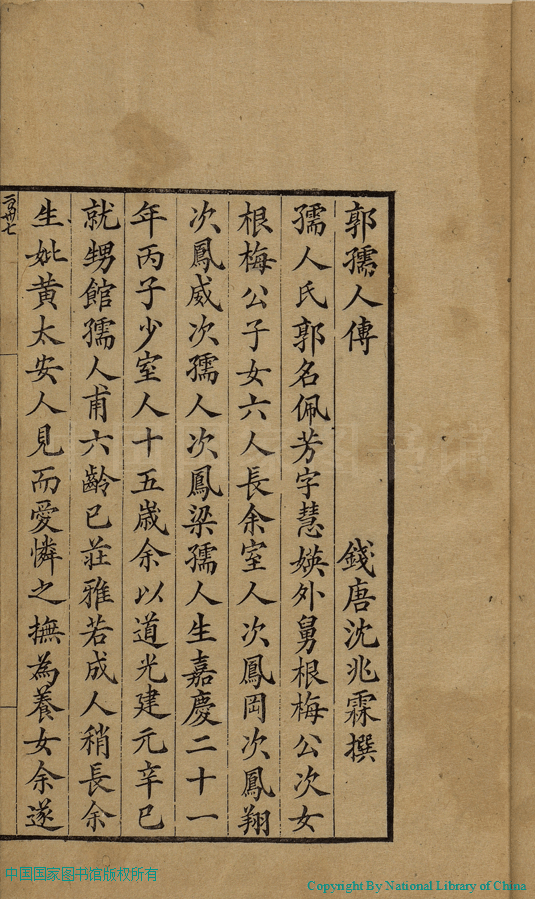 郭孺人傳
錢唐沈兆霖撰
孺人氏郭名佩芳字慧媖外舅根梅公次女
根梅公子女六人長余室人次鳳岡次鳳翔
次鳳威次孺人次鳳梁孺人生嘉慶二十一
年丙子少室人十五歲余以道光建元辛巳
就甥館孺人甫六齡已莊雅若成人稍長余
生妣黃太安人見而愛憐之撫為養女余遂
中国国家图书馆版权所有
Copyright By National Library of China